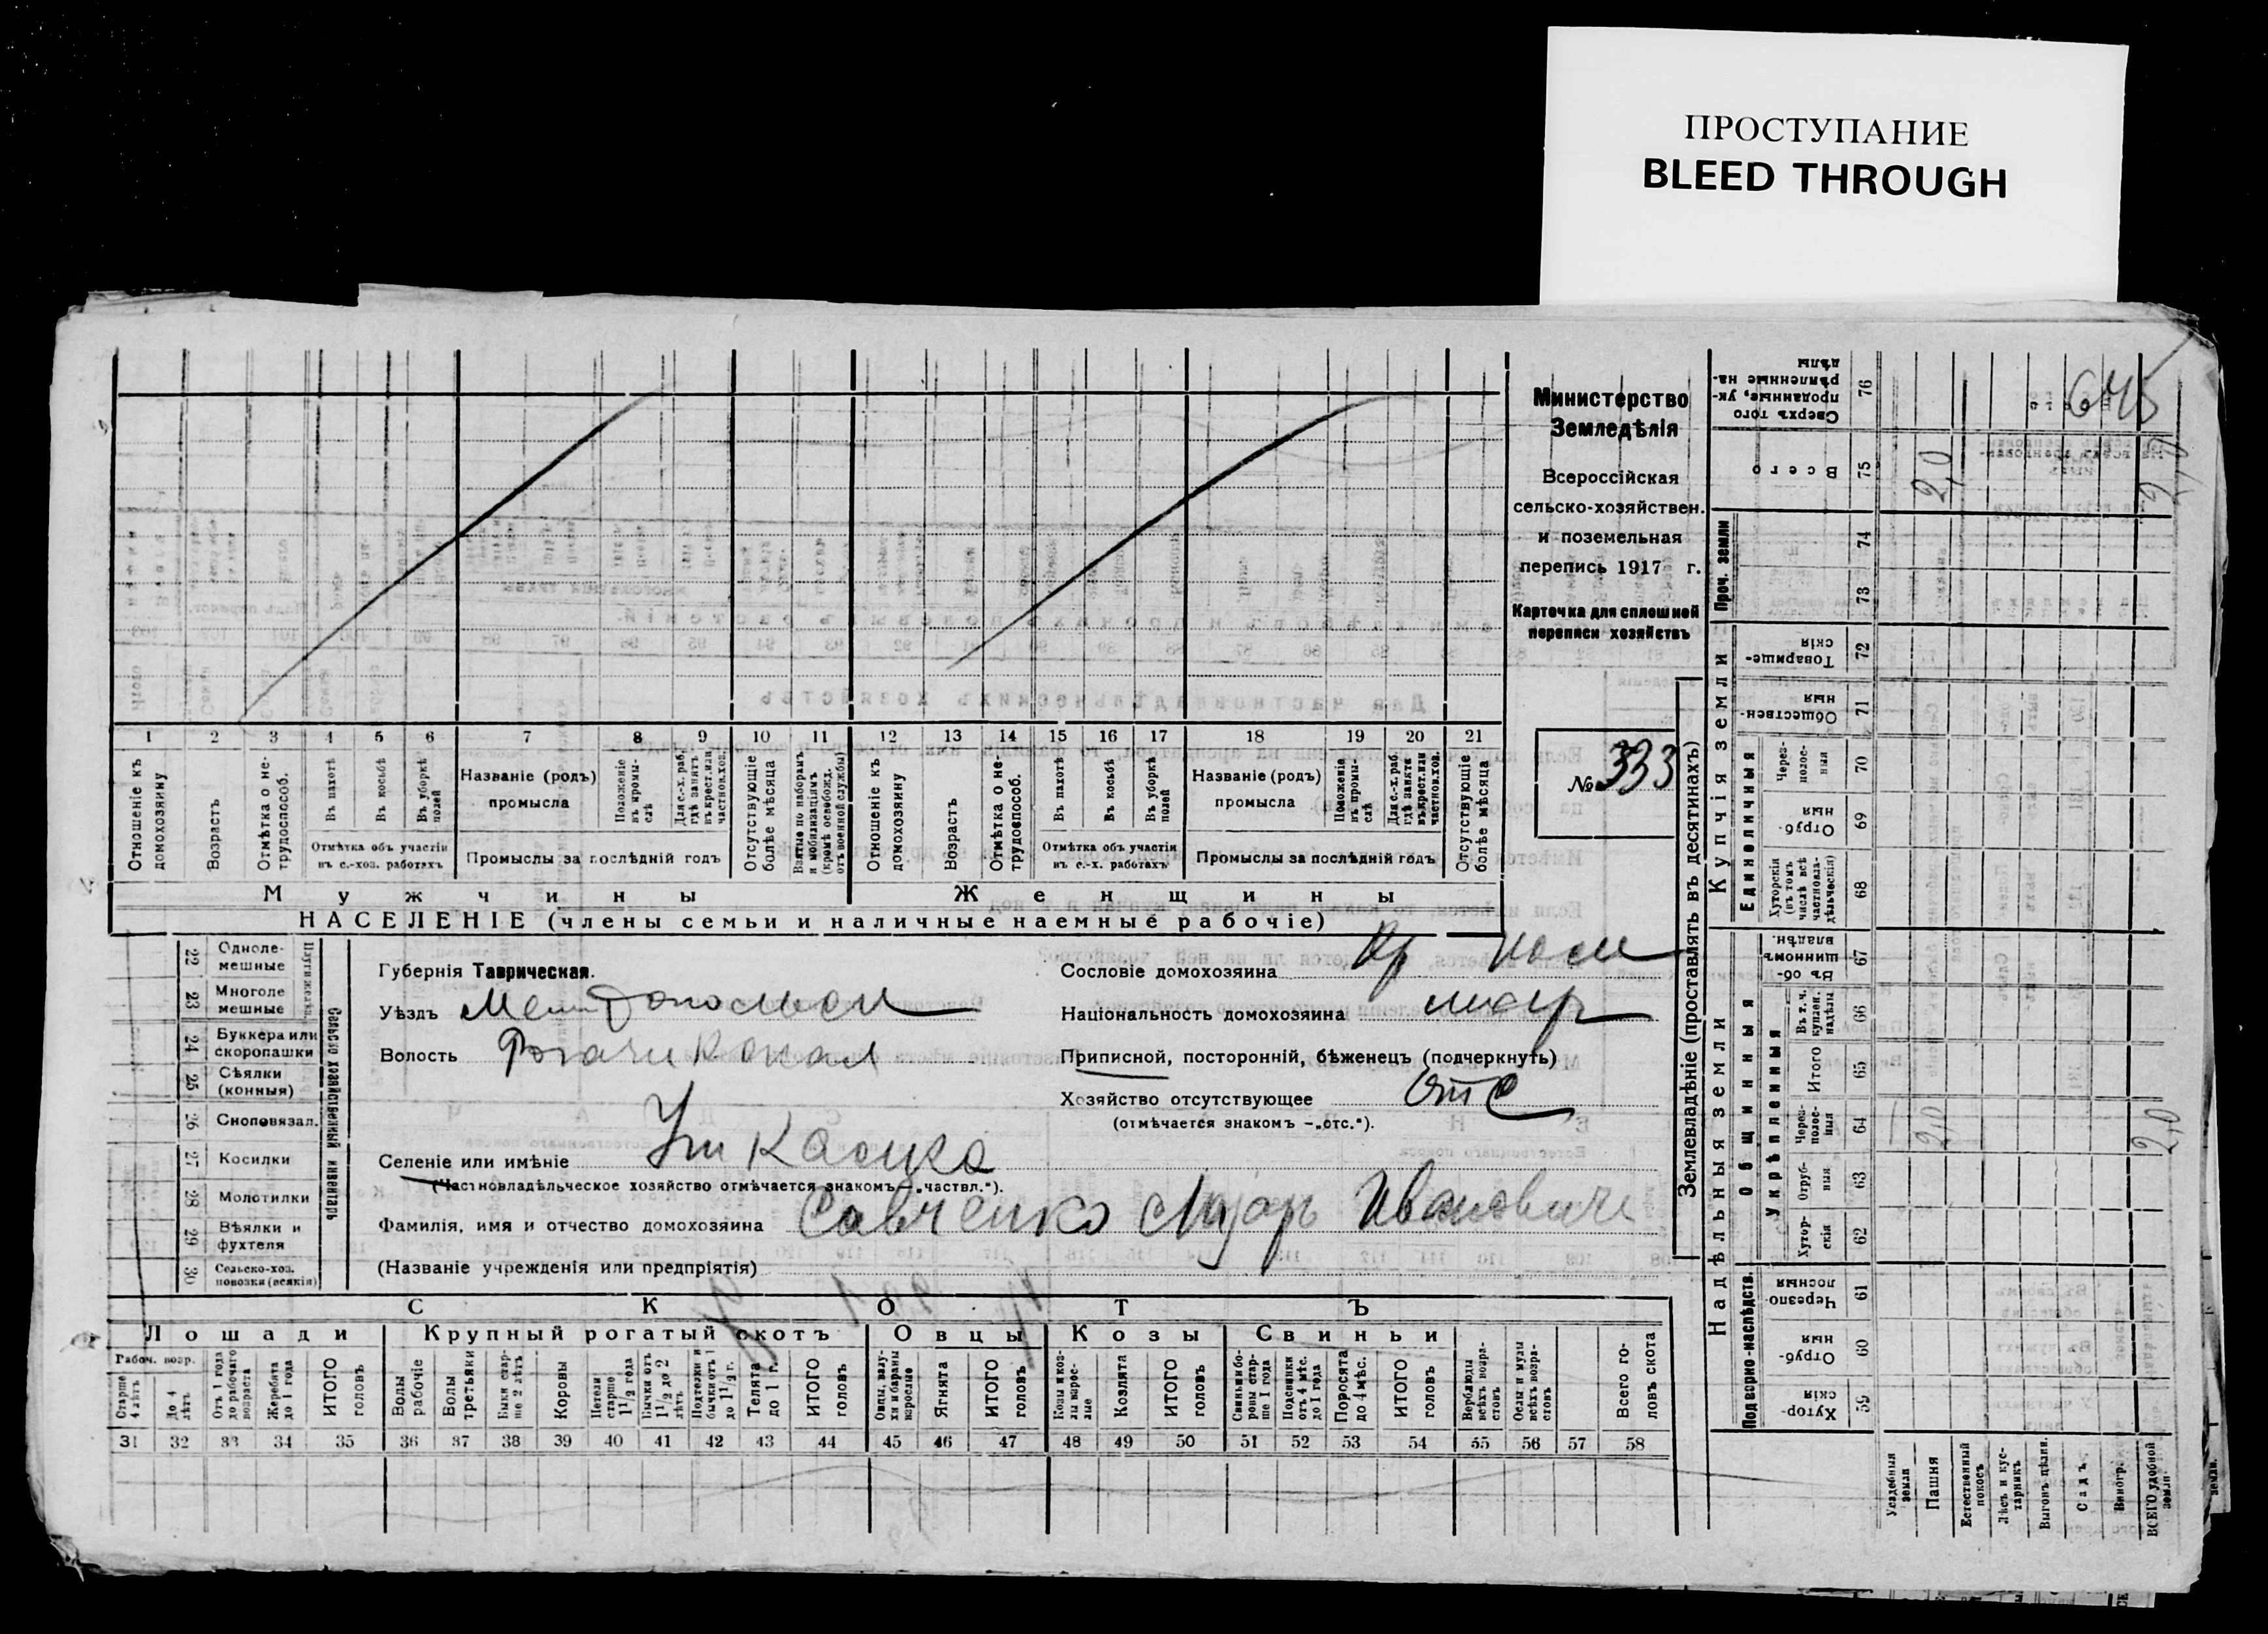 ПРОСТУПАНИЕ
BLEED THROUGH
Министерство
Земледѣлія
Всероссійская
сельско-хозяйствен.
и поземельная
перепись 1917 г.
Карточка для сплошной
переписи хозяйствъ
№ 333
1 2 3 4 5 6 7 8 9 10 11 12 13 14 15 16 17 18 19 20 21
Отношеніе къ домохозяину
Возрастъ
Отмѣтка о не-трудоспособ.
Въ пахотѣ
Въ косьбѣ
Въ уборкѣ полей
Отмѣтка объ участіи въ с.-хоз. работахъ
Названіе (родъ) промысла
Положеніе въ промы-слѣ
Для с.-х. раб. гдѣ занятъ въ крест. или частнов. хоз.
Промыслы за послѣдній годъ
Отсутствующіе болѣе мѣсяца
Взятые по наборамъ и мобилизаціямъ (кромѣ освобожд. отъ военной службы)
Отношеніе къ домохозяину
Возрастъ
Отмѣтка о не-трудоспособ.
Въ пахотѣ
Въ косьбѣ
Въ уборкѣ полей
Отмѣтка объ участіи въ с.-х. работахъ
Названіе (родъ) промысла
Положеніе въ промы-слѣ
Для с.-х. раб. гдѣ занята въ крест. или частнов. хоз.
Промыслы за послѣдній годъ
Отсутствующіе болѣе мѣсяца
Мужчины Женщины
НАСЕЛЕНІЕ (члены семьи и наличные наемные рабочіе)
Сельско хозяйственный инвентарь
22 Одноле-мешные
23 Многоле мешные
24 Буккера или скоропашки
25 Сѣялки (конныя)
26 Сноповязал.
27 Косилки
28 Молотилки
29 Вѣялки и фухтеля
30 Сельско-хоз. повозки (всякія)
Губернія Таврическая.
Уѣздъ Мелитопольск
Волость Рогачикская
Селеніе или имѣніе Ушкалка
(Частновладѣльческое хозяйство отмѣчается знакомъ—„частвл.“).
Фамилія, имя и отчество домохозяина Савченко Лазарь Ивановичъ
(Названіе учрежденія или предпріятія)
Сословіе домохозяина Кр
Національность домохозяина
Приписной, посторонній, бѣженецъ (подчеркнуть)
Хозяйство отсутствующее Отс
(отмѣчается знакомъ —„отс.“).
СКОТЪ
Лошади Крупный рогатый скотъ Овцы Козы Свиньи
Рабоч. возр.
Старше 4 лѣтъ
До 4 лѣтъ
Отъ 1 года до рабочаго возраста
Жеребята до 1 года
ИТОГО головъ
Волы рабочіе
Волы третьяки
Быки стар-ше 2 лѣтъ
Коровы
Нетели старше 1½ года
Бычки отъ 1½ до 2 лѣтъ
Подтелки и бычки отъ 1 до 1½ г.
Телята до 1 г.
ИТОГО головъ
Овцы, валу-хи и бараны взрослые
Ягнята
ИТОГО головъ
Козы и коз-лы взрос-лые
Козлята
ИТОГО головъ
Свиньи и бо-ровы стар-ше 1 года
Подсвинки отъ 4 мѣс. до 1 года
Поросята до 4 мѣс.
ИТОГО головъ
Верблюды всѣхъ возра-стовъ
Ослы и мулы всѣхъ возра-стовъ
Всего го-ловъ скота
31 32 33 34 35 36 37 38 39 40 41 42 43 44 45 46 47 48 49 50 51 52 53 54 55 56 57 58
Землевладѣніе (проставлять въ десятинахъ)
Надѣльныя земли Купчія земли Проч. земли
Подворно-наслѣдств.
Общинныя
Укрѣпленныя
Единоличныя
Хутор-скія 59
Отруб-ныя 60
Черезпо-лосныя 61
Хутор-скія 62
Отруб-ныя 63
Через-полос-ныя 64
Итого 65
Въ т. ч. куплен. надѣлы 66
Въ об-щинномъ владѣн. 67
Хуторскія (въ томъ числѣ всѣ частновла-дѣльческія) 68
Отруб-ныя 69
Через-полос-ныя 70
Обществен-ныя 71
Товарище-скія 72
73
74
Всего 75
Сверхъ того проданные, ук-рѣпленные на-дѣлы 76
Усадебныя земли
Пашня 2,0 2,0
Естественный покосъ
Лѣсъ и кус-тарникъ
Выгонъ цѣлин.
Садъ.
Виногр.
ВСЕГО удобной земли 2,0 2,0
645